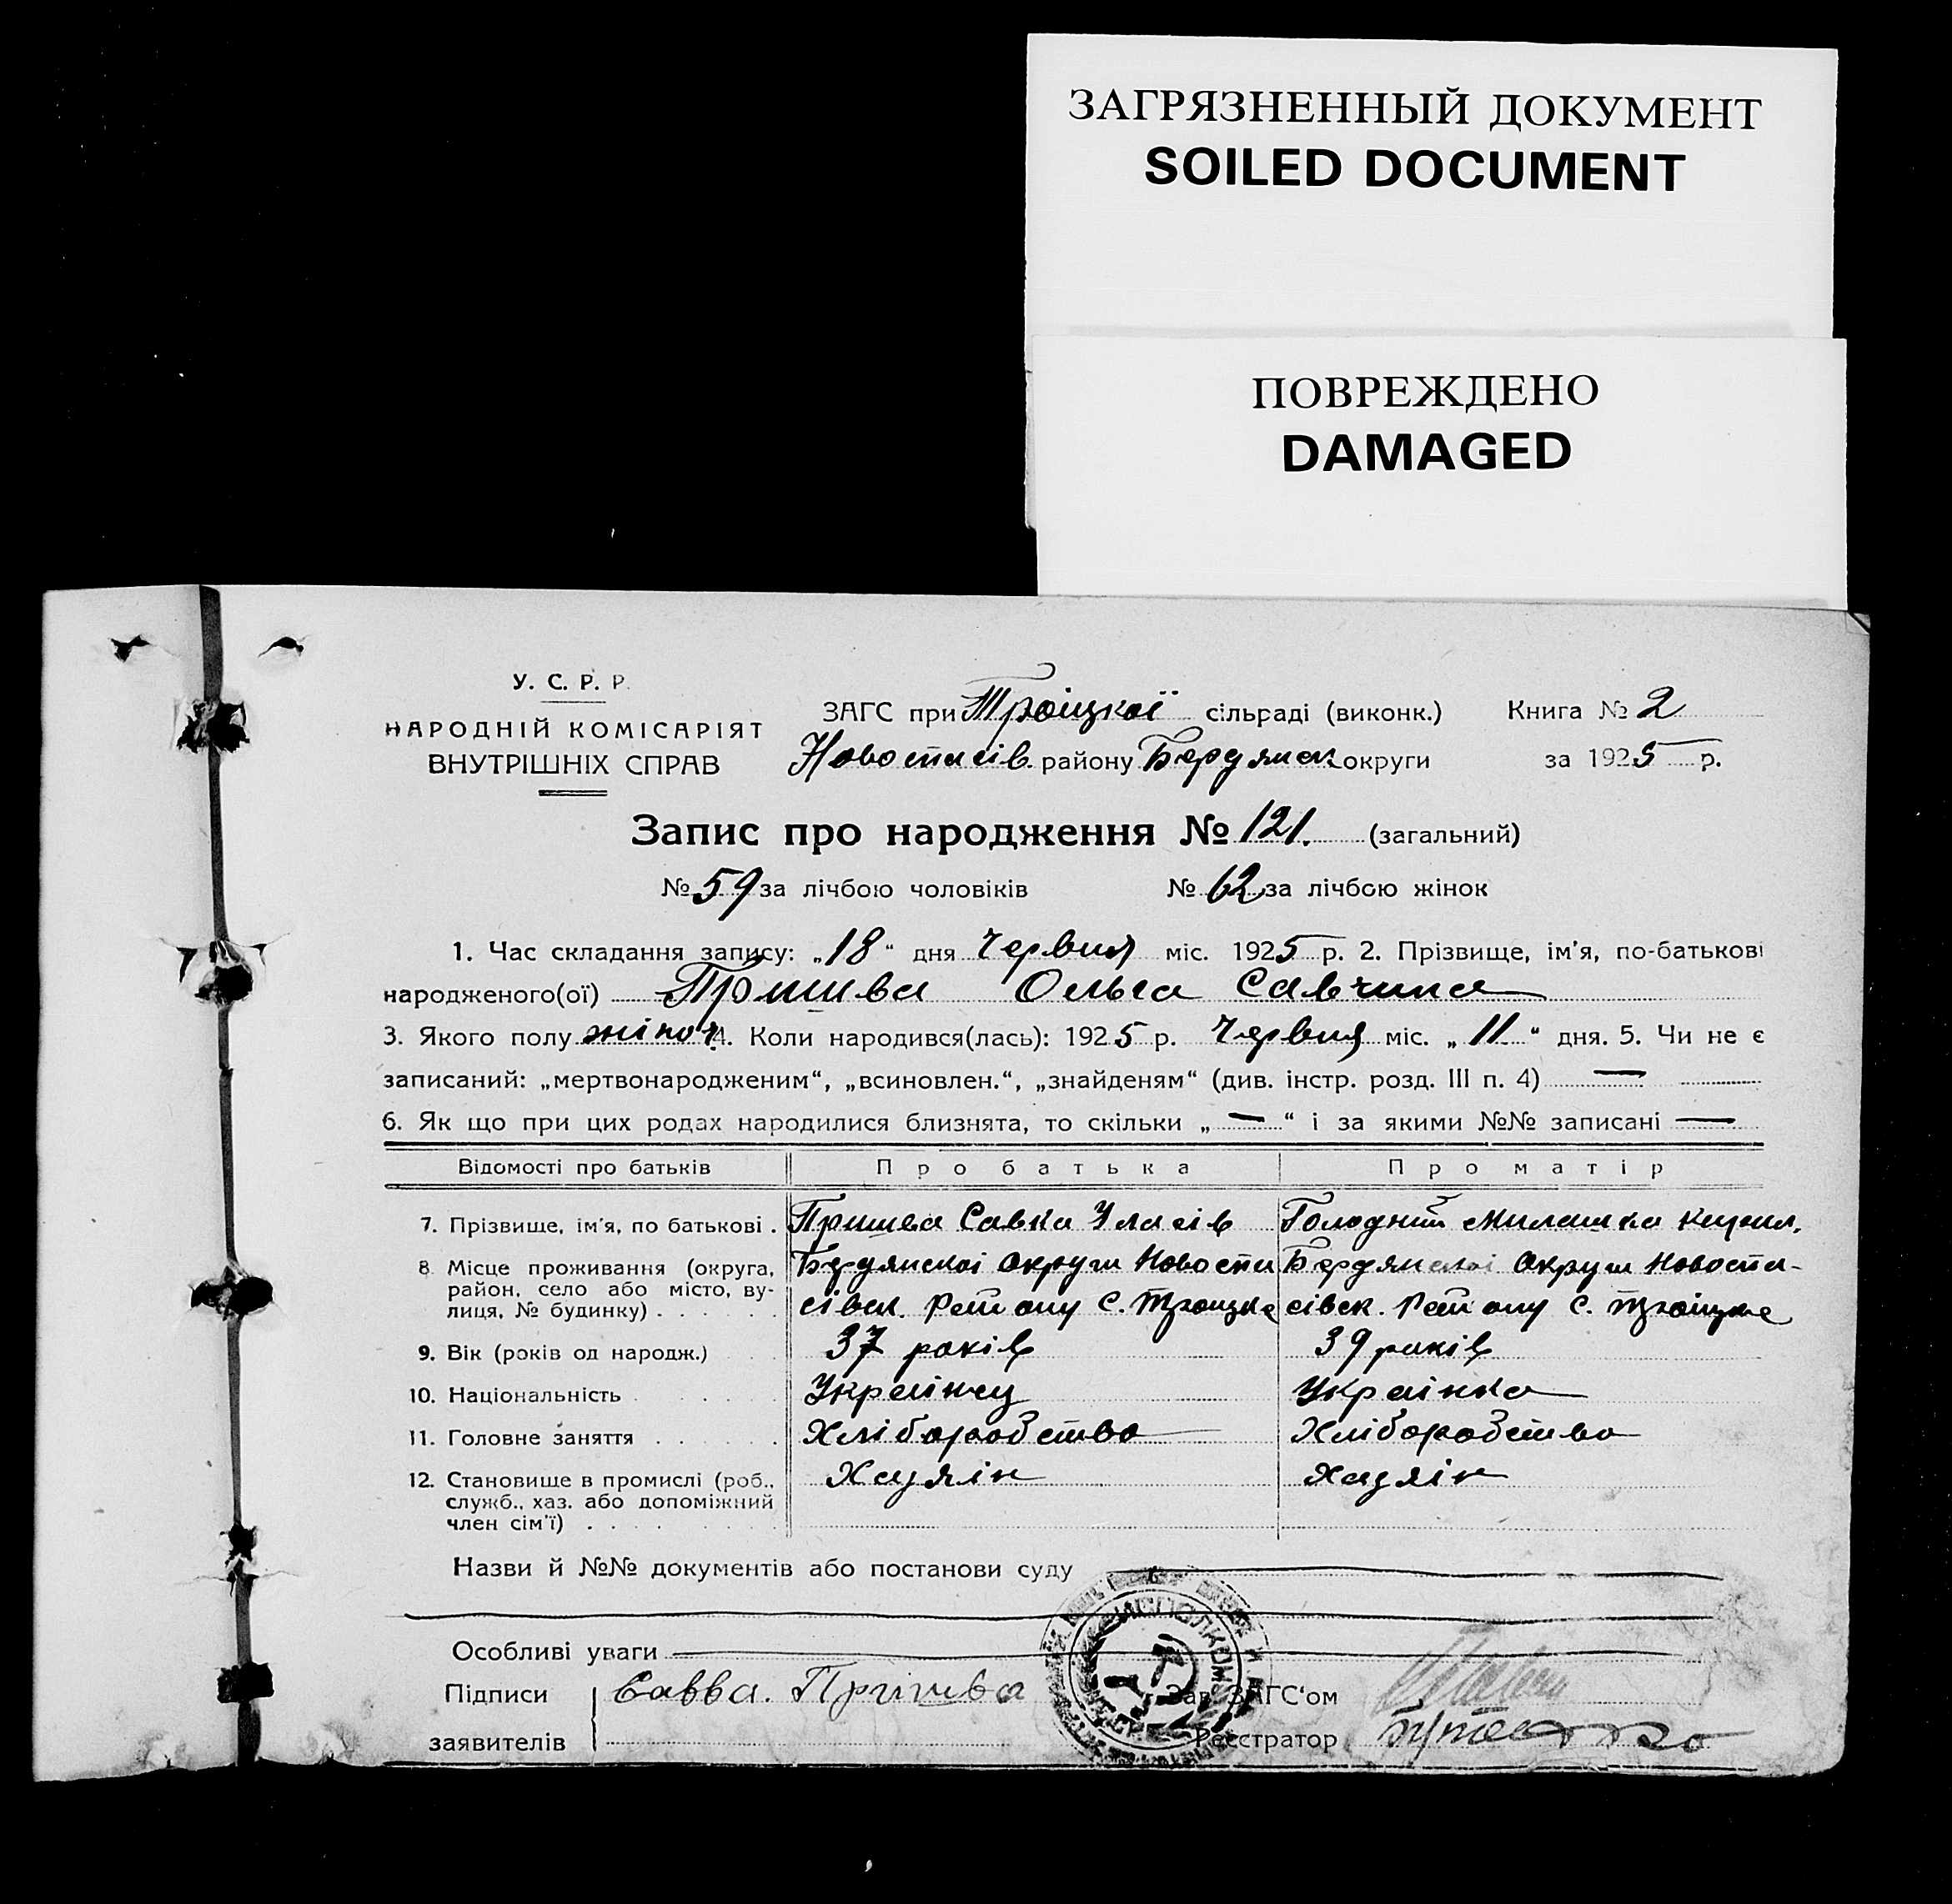 ЗАГРЯЗНЕННЫЙ ДОКУМЕНТ
SOILED DOCUMENT
ПОВРЕЖДЕНО
DAMAGED
У. С. Р. Р.
НАРОДНІЙ КОМІСАРІЯТ
ВНУТРІШНІХ СПРАВ
ЗАГС при Троіцкої сільраді (виконк.)
Новоспасів. району Бердянск округи
Книга № 2
за 1925 р.
Запис про народження № 121. (загальний)
№ 59 за лічбою чоловіків № 62 за лічбою жінок
1. Час складання запису: „18“ дня Червня міс. 1925 р. 2. Прізвище, ім'я, по-батькові
народженого(ої) Пришва Ольга Савчина
3. Якого полу жіноч. 4. Коли народився(лась): 1925 р. Червня міс. „11“ дня. 5. Чи не є
записаний: „мертвонародженим“, „всиновлен.“, „знайденям“ (див. інстр. розд. III п. 4) —
6. Як що при цих родах народилися близнята, то скільки „—“ і за якими №№ записані —
Відомості про батьків Про батька Про матір
7. Прізвище, ім'я, по батькові . Пришва Савка Уласів Голодний Милашка Кирил.
8 Місце проживання (округа, Бердянскоі Округи Новоспа Бердянскоі Округи Новоспа-
район, село або місто, ву- сівск. Району С. Троіцке сівск. Району С. Троіцке
лиця, № будинку) . . . . .
9. Вік (років од народж.) 37 років 39 років
10. Національність . . . . Украінец Украінка
11. Головне заняття . . . . Хліборобство Хліборобство
12. Становище в промислі (роб., Хазяін Хазяін
служб., хаз. або допоміжний
член сім'ї) . . . . . . .
Назви й №№ документів або постанови суду
Особливі уваги
Підписи Савва. Пришва Зав. ЗАГС'ом
заявителів Реєстратор
ИСПОЛКОМ